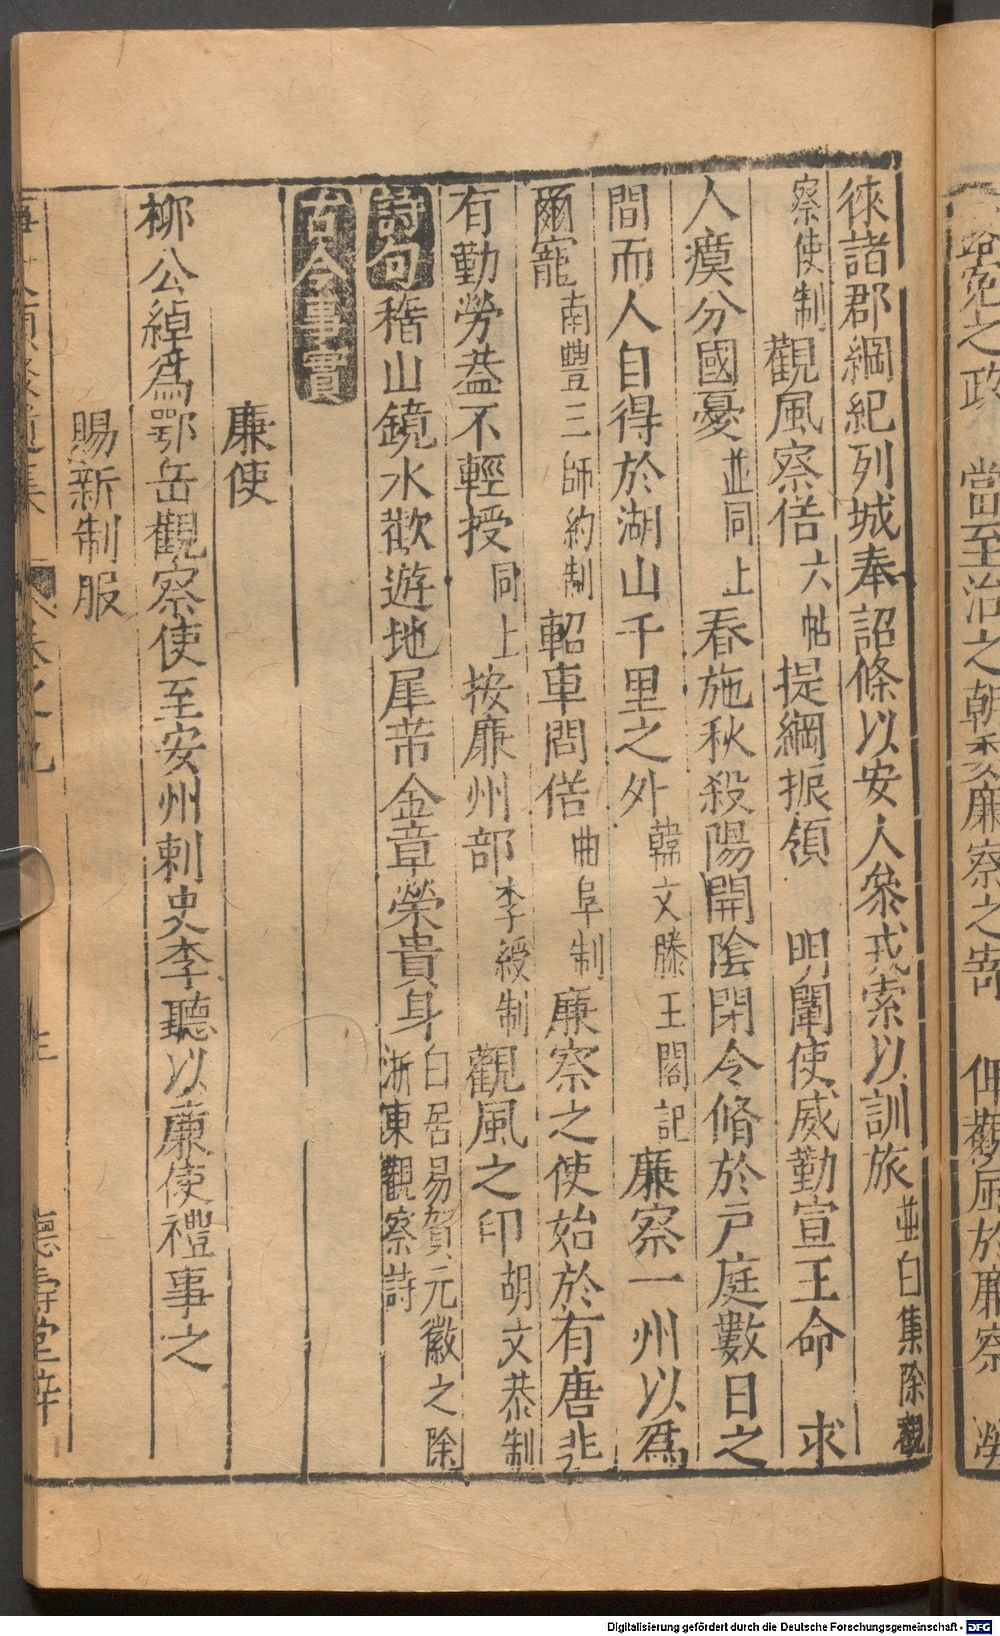 徠諸郡綱紀列城奉詔條以安人叅戎索以訓旅並白集除觀
察使制觀風察俗六帖提綱振領 明闡使威勤宣王命 求
人瘼分國憂並同上春施秋殺陽開陰閉令脩於戶庭數日之
間而人自得於湖山千里之外韓文滕王閣記廉察一州以爲
爾寵南豐三師約制軺車問俗曲阜制廉察之使始於有唐非
有勤勞葢不輕授同上按廉州部李綬制觀風之印胡文恭制
詩句稽山鏡水歡遊地犀帶金章榮貴身白居易賀元徽之除浙東觀察詩
古今事實
廉使
柳公綽爲鄂岳觀察使至安州刺史李聽以廉使禮事之
賜新制服
德壽堂梓
之政 當至治之朝委廉察之寄 觀風於廉察
Digitalisierung gefördert durch die Deutsche Forschungsgemeinschaft - DFG